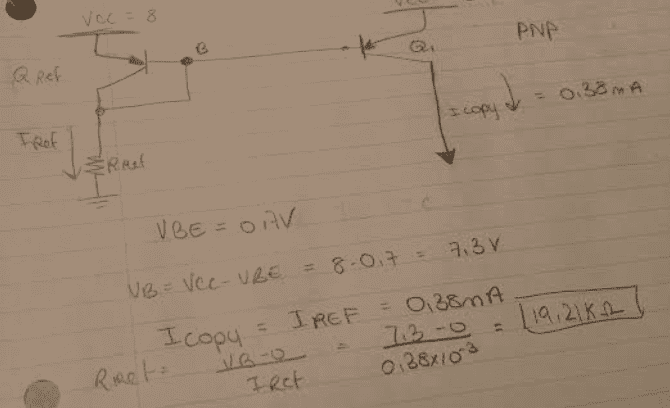 VCC = 8
VCC
PNP
B
Q1
Q Ref
I copy ↓ = 0.38mA
IRef
RRef
VBE = 0.7V
VB = VCC - VBE = 8-0.7 = 7.3V
Icopy = IREF = 0.38mA
RRef = VB-0 / IRef = 7.3-0 / 0.38x10^-3 = 19.21KΩ